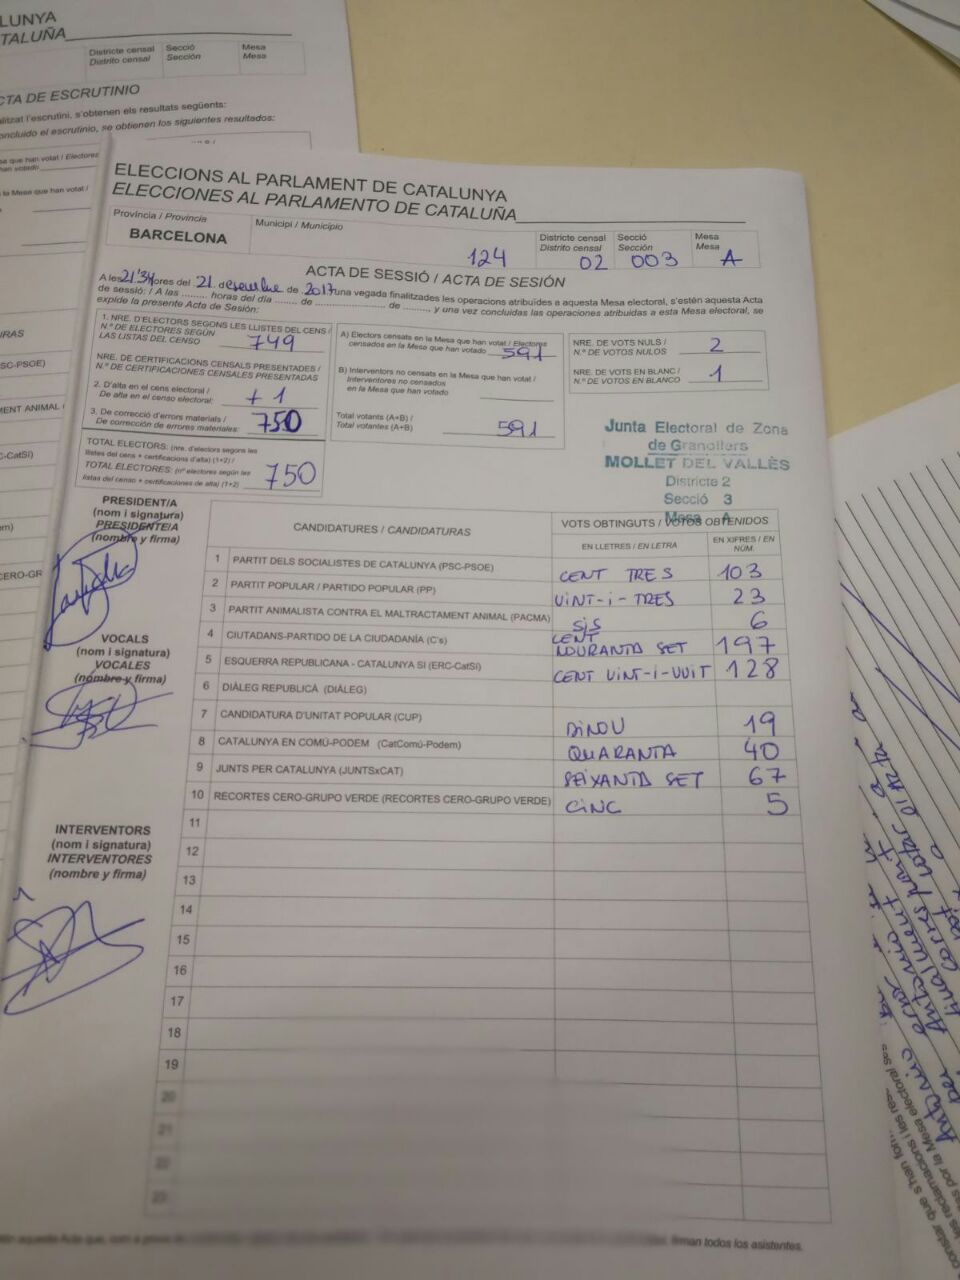 LUNYA
TALUÑA
Districte censal
Distrito censal
Secció
Sección
Mesa
Mesa
CTA DE ESCRUTINIO
alitzat l'escrutini, s'obtenen els resultats següents:
oncluido el escrutinio, se obtienen los siguientes resultados:
sa que han votat / Electores
han votado
la Mesa que han votat /
URAS
SC-PSOE)
MENT ANIMAL (
C-CatSí)
em)
CERO-GR
ELECCIONS AL PARLAMENT DE CATALUNYA
ELECCIONES AL PARLAMENTO DE CATALUÑA
Província / Provincia
BARCELONA
Municipi / Municipio
124
Districte censal
Distrito censal
02
Secció
Sección
003
Mesa
Mesa
A
ACTA DE SESSIÓ / ACTA DE SESIÓN
A les 21'34 hores del 21 de desembre de 2017 una vegada finalitzades les operacions atribuïdes a aquesta Mesa electoral, s'estén aquesta Acta
de sessió: / A las ......... horas del día ....... de .................. de ........, y una vez concluidas las operaciones atribuidas a esta Mesa electoral, se
expide la presente Acta de Sesión:
1. NRE. D'ELECTORS SEGONS LES LLISTES DEL CENS /
N.º DE ELECTORES SEGÚN
LAS LISTAS DEL CENSO 749
NRE. DE CERTIFICACIONS CENSALS PRESENTADES /
N.º DE CERTIFICACIONES CENSALES PRESENTADAS
2. D'alta en el cens electoral /
De alta en el censo electoral: + 1
3. De correcció d'errors materials /
De corrección de errores materiales: 750
TOTAL ELECTORS: (nre. d'electors segons les
llistes del cens + certificacions d'alta) (1+2) /
TOTAL ELECTORES: (nº electores según las
listas del censo + certificaciones de alta) (1+2) 750
A) Electors censats en la Mesa que han votat / Electores
censados en la Mesa que han votado 591
B) Interventors no censats en la Mesa que han votat /
Interventores no censados
en la Mesa que han votado
Total votants (A+B) /
Total votantes (A+B) 591
NRE. DE VOTS NULS /
N.º DE VOTOS NULOS 2
NRE. DE VOTS EN BLANC /
N.º DE VOTOS EN BLANCO 1
Junta Electoral de Zona
de Granollers
MOLLET DEL VALLÈS
Districte 2
Secció 3
Mesa A
PRESIDENT/A
(nom i signatura)
PRESIDENTE/A
(nombre y firma)
VOCALS
(nom i signatura)
VOCALES
(nombre y firma)
INTERVENTORS
(nom i signatura)
INTERVENTORES
(nombre y firma)
CANDIDATURES / CANDIDATURAS
VOTS OBTINGUTS / VOTOS OBTENIDOS
EN LLETRES / EN LETRA
EN XIFRES / EN NÚM.
1 PARTIT DELS SOCIALISTES DE CATALUNYA (PSC-PSOE) CENT TRES 103
2 PARTIT POPULAR / PARTIDO POPULAR (PP) VINT-i-TRES 23
3 PARTIT ANIMALISTA CONTRA EL MALTRACTAMENT ANIMAL (PACMA) SiS 6
4 CIUTADANS-PARTIDO DE LA CIUDADANÍA (C's) CENT NOURANTA SET 197
5 ESQUERRA REPUBLICANA - CATALUNYA SI (ERC-CatSí) CENT VINT-i-VUIT 128
6 DIÀLEG REPUBLICÀ (DIÀLEG)
7 CANDIDATURA D'UNITAT POPULAR (CUP) DiNOU 19
8 CATALUNYA EN COMÚ-PODEM (CatComú-Podem) QUARANTA 40
9 JUNTS PER CATALUNYA (JUNTSxCAT) SEIXANTA SET 67
10 RECORTES CERO-GRUPO VERDE (RECORTES CERO-GRUPO VERDE) CiNC 5
11
12
13
14
15
16
17
18
19
20
21
22
23
firman todos los asistentes.